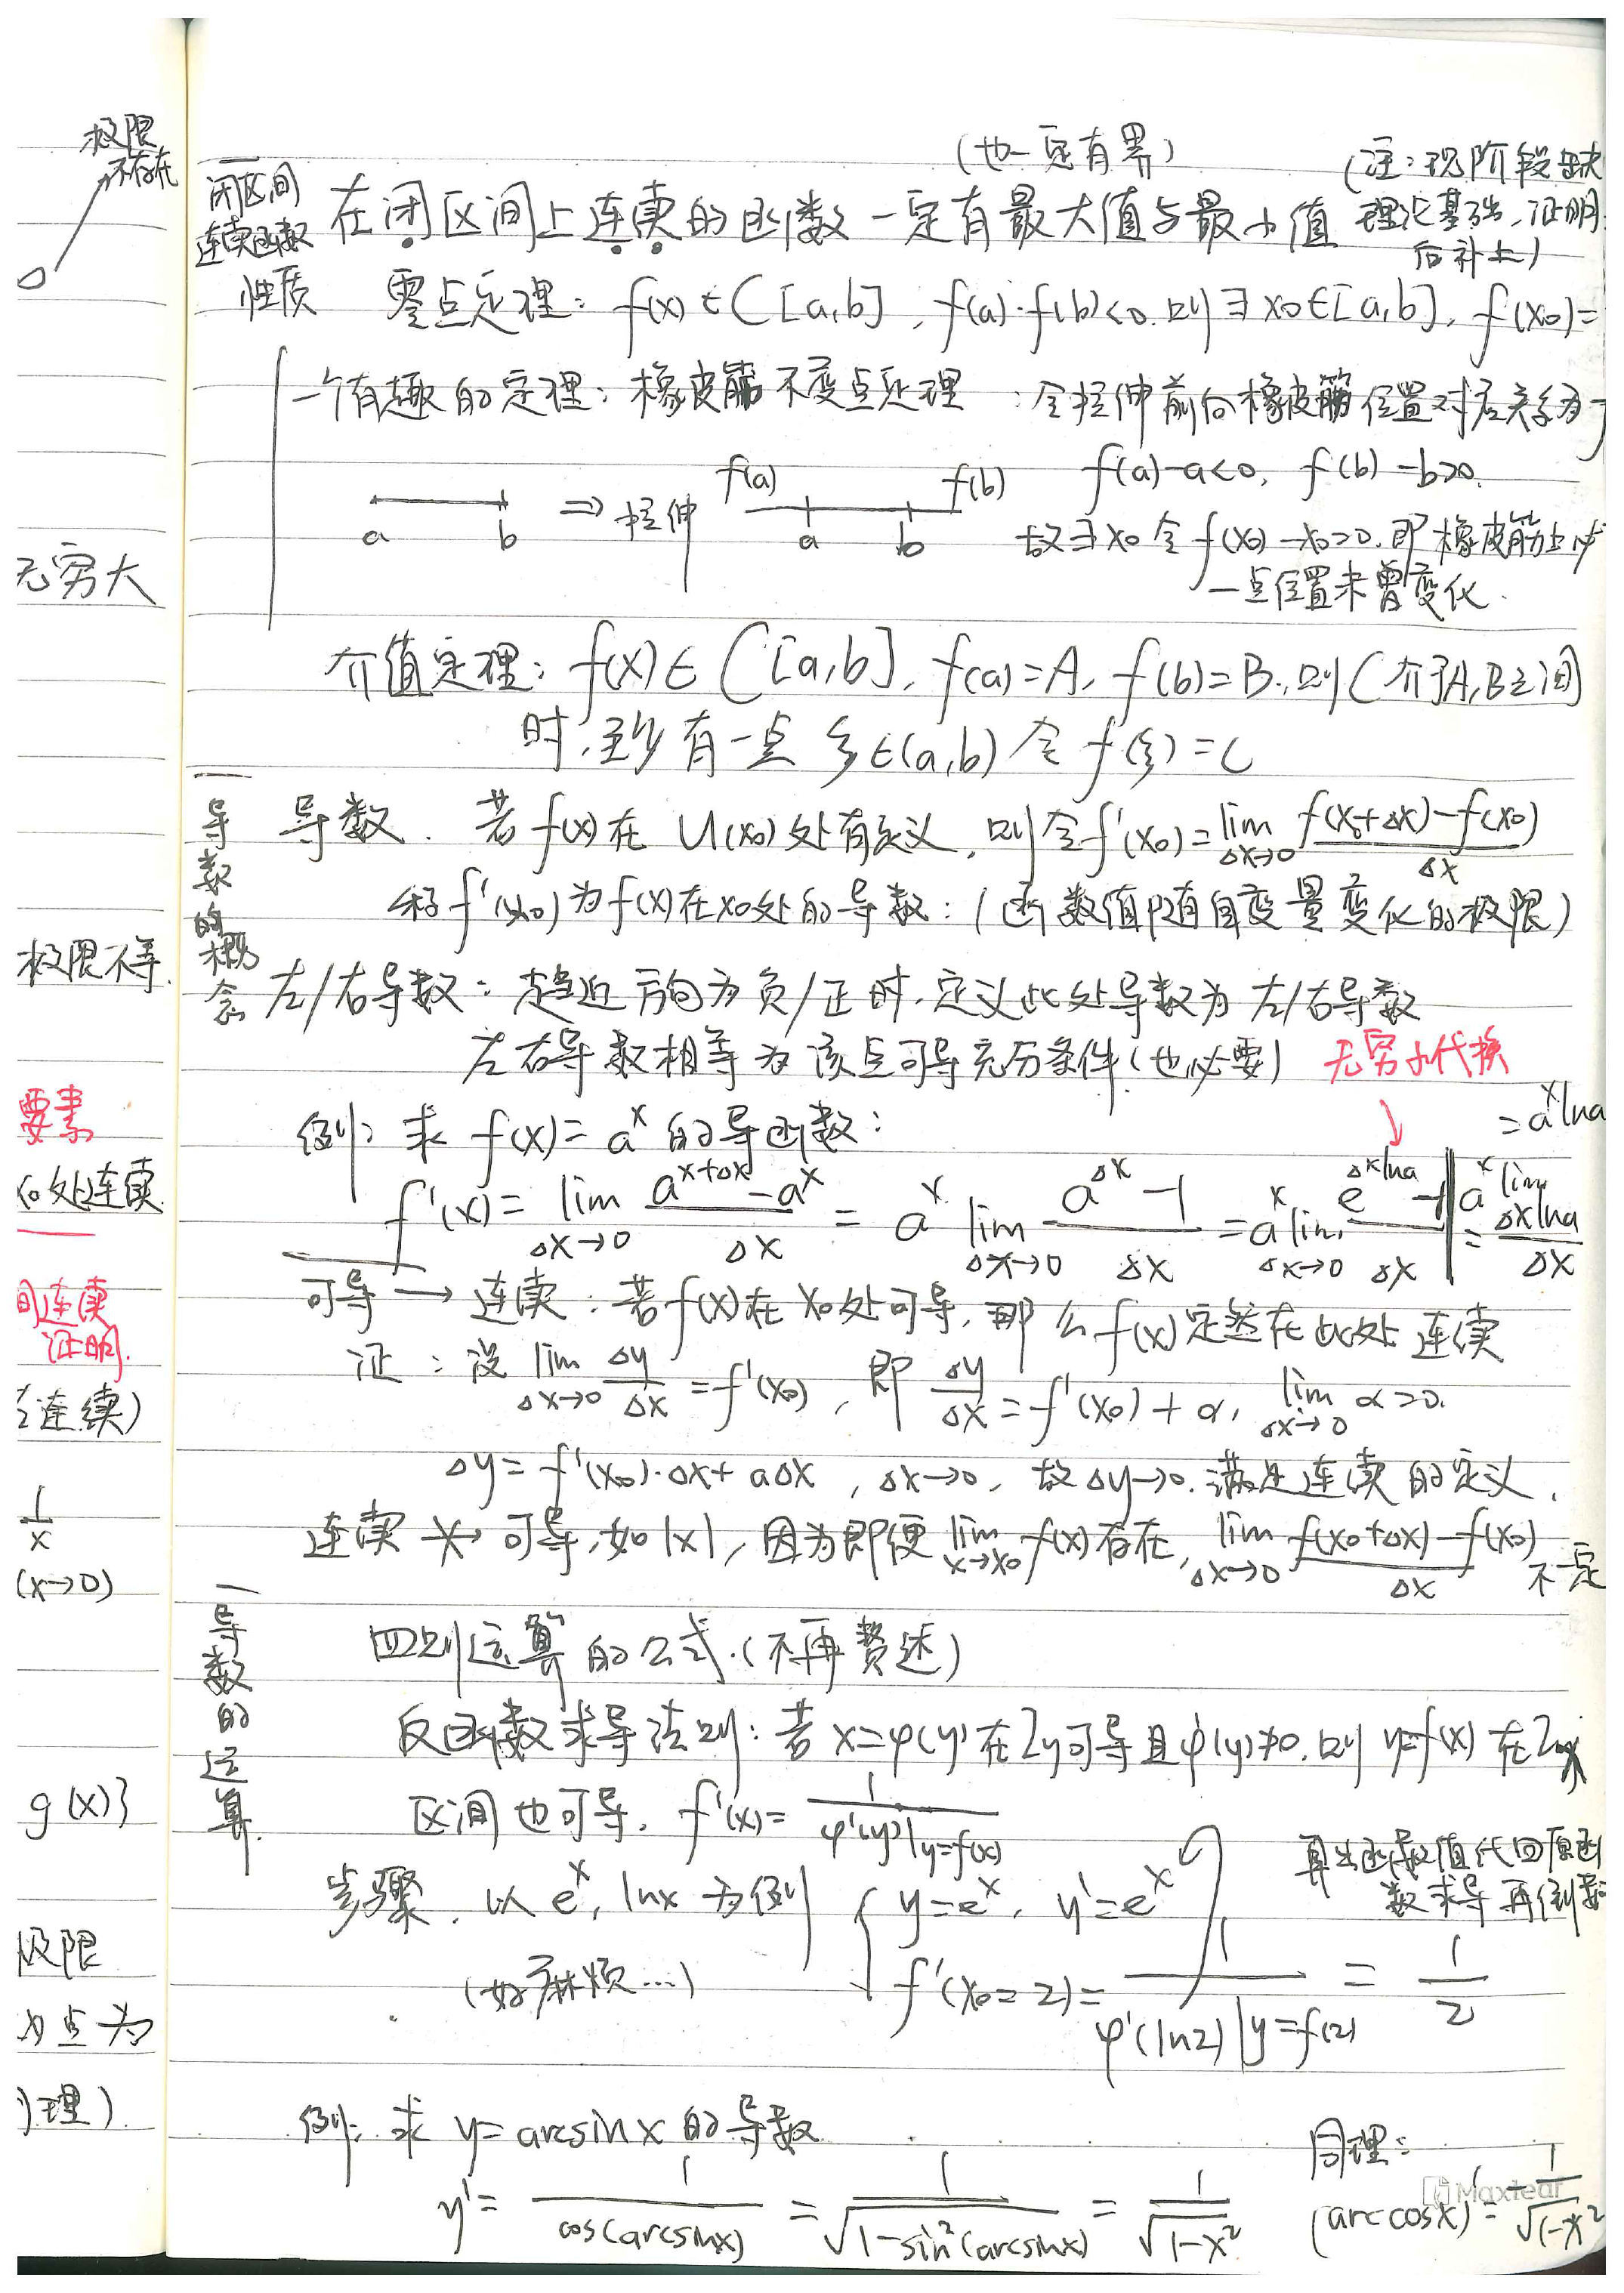 极限
不存在
无穷大
极限不等.
要素
x0处连续.
间连续
证明.
连续)
1/x
(x→0)
g(x)}
极限
为点为
理).
(也一定有界)
(注:现阶段缺
理论基础,证明
后补上)
闭区间
连续函数
性质
在闭区间上连续的函数一定有最大值与最小值
零点定理: f(x)∈C[a,b], f(a)·f(b)<0.则∃x0∈[a,b], f(x0)=
一个有趣的定理:橡皮筋不变点定理 :令拉伸前向橡皮筋位置对应关系为f
a b ⇒拉伸 f(a) a b f(b)
f(a)-a<0, f(b)-b>0.
故∃x0令f(x0)-x0=0.即橡皮筋上必
一点位置未曾变化.
介值定理: f(x)∈C[a,b], f(a)=A, f(b)=B.,则C介于A,B之间
时,至少有一点ξ∈(a,b)令f(ξ)=C
导数的概念
导数. 若f(x)在U(x0)处有定义,则令f'(x0)=lim Δx→0 (f(x0+Δx)-f(x0))/Δx
称f'(x0)为f(x)在x0处的导数:(函数值随自变量变化的极限)
左/右导数:趋近方向为负/正时,定义此处导数为左/右导数
左右导数相等为该点可导充分条件(也必要)
无穷小代换
例: 求f(x)=a^x的导函数:
f'(x)=lim Δx→0 (a^(x+Δx)-a^x)/Δx = a^x lim Δx→0 (a^Δx-1)/Δx = a^x lim Δx→0 (e^(Δxlna)-1)/Δx = a^x lim Δxlna/Δx
=a^x lna
可导→连续:若f(x)在x0处可导,那么f(x)定然在此处连续
证:设lim Δx→0 Δy/Δx=f'(x0),即Δy/Δx=f'(x0)+α, lim Δx→0 α=0.
Δy=f'(x0)·Δx+aΔx, Δx→0, 故Δy→0.满足连续的定义.
连续↛可导,如|x|,因为即便lim x→x0 f(x)存在, lim Δx→0 (f(x0+Δx)-f(x0))/Δx 不一定
导数的运算.
四则运算的公式.(不再赘述)
反函数求导法则:若x=φ(y)在Iy可导且φ'(y)≠0.则y=f(x)在Ix
区间也可导. f'(x)=1/φ'(y)|y=f(x)
步骤.以e^x, lnx为例 { y=e^x, y'=e^x
算出函数值代回原函
数求导再倒数
(好麻烦...)
f'(x0=2)=1/φ'(ln2)|y=f(2) = 1/2
例:求y=arcsinx的导数
y'=1/cos(arcsinx) = 1/√(1-sin²(arcsinx)) = 1/√(1-x²)
同理:
(arccosx)'=-1/√(1-x²)
Maxleaf